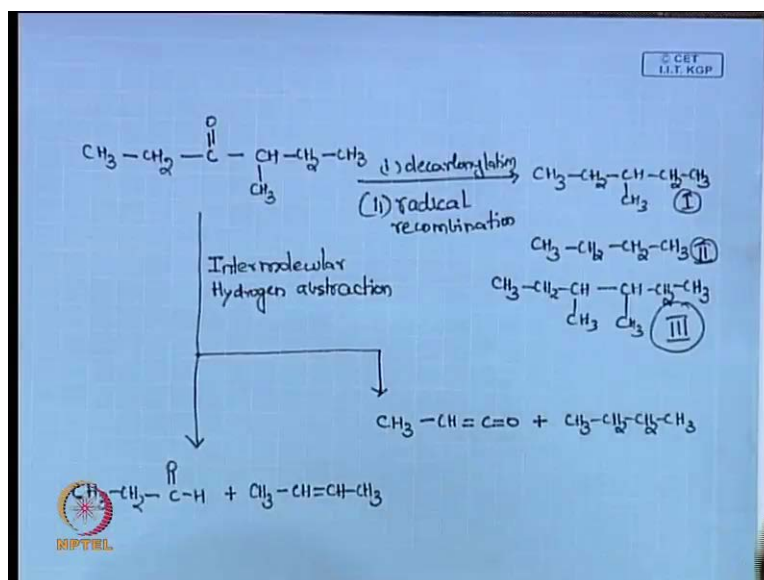 © CET
I.I.T. KGP
O
||
CH3 – CH2 – C – CH – CH2 – CH3
CH3
(i) decarbonylation
(ii) radical
recombination
CH3 – CH2 – CH – CH2 – CH3
CH3 (I)
CH3 – CH2 – CH2 – CH3 (II)
CH3 – CH2 – CH – CH – CH2 – CH3
CH3 CH3 (III)
Intermolecular
Hydrogen abstraction
CH3 – CH = C = O + CH3 – CH2 – CH2 – CH3
O
||
CH3 – CH2 – C – H + CH3 – CH = CH – CH3
NPTEL